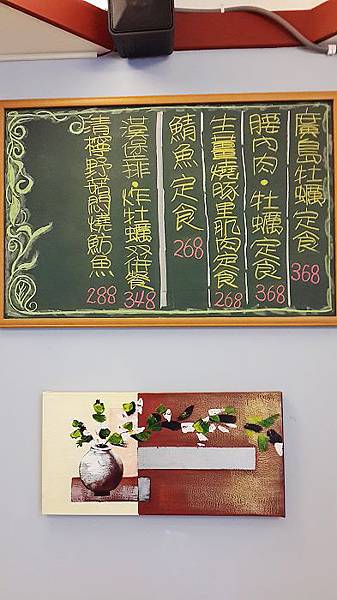 廣島牡蠣定食 368
腰內肉・牡蠣定食 368
生薑燒豚里肌肉定食 268
鯖魚定食 268
漢堡排・炸牡蠣双併餐 348
清檸野菇燜燒魴魚 288